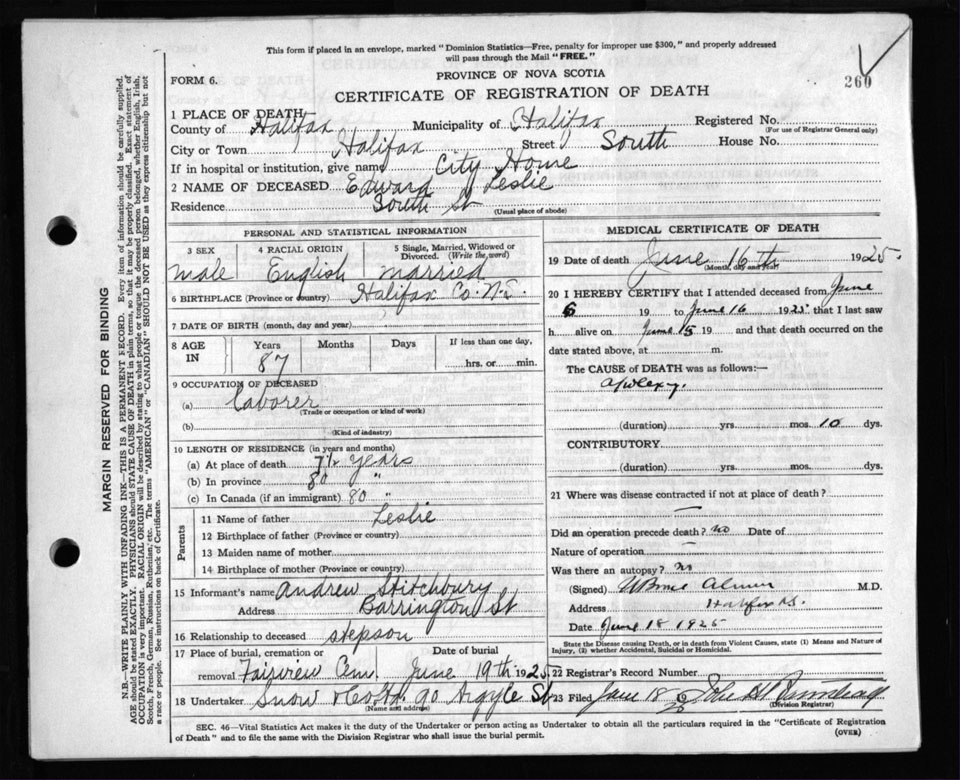 This form if placed in an envelope, marked "Dominion Statistics—Free, penalty for improper use $300," and properly addressed
will pass through the Mail "FREE."
FORM 6.
PROVINCE OF NOVA SCOTIA
260
CERTIFICATE OF REGISTRATION OF DEATH
1 PLACE OF DEATH
County of Halifax Municipality of Halifax Registered No.
(For use of Registrar General only)
City or Town Halifax Street South House No.
If in hospital or institution, give name City Home
2 NAME OF DECEASED Edward Leslie
Residence South St
(Usual place of abode)
PERSONAL AND STATISTICAL INFORMATION
3 SEX 4 RACIAL ORIGIN 5 Single, Married, Widowed or
Divorced. (Write the word)
male English married
6 BIRTHPLACE (Province or country) Halifax Co. N.S.
7 DATE OF BIRTH (month, day and year)
8 AGE IN Years Months Days If less than one day,
87 hrs. or min.
9 OCCUPATION OF DECEASED
(a) Laborer
(Trade or occupation or kind of work)
(b)
(Kind of industry)
10 LENGTH OF RESIDENCE (in years and months)
(a) At place of death 7½ years
(b) In province 80 "
(c) In Canada (if an immigrant) 80 "
Parents
11 Name of father Leslie
12 Birthplace of father (Province or country)
13 Maiden name of mother
14 Birthplace of mother (Province or country)
15 Informant's name Andrew Stitchbury
Address Barrington St
16 Relationship to deceased stepson
17 Place of burial, cremation or Date of burial
removal Fairview Cem. June 19th 1925
18 Undertaker Snow & Co Ltd. 90 Argyle St
(Name and address)
MEDICAL CERTIFICATE OF DEATH
19 Date of death June 16th 1925.
(Month, day and year)
20 I HEREBY CERTIFY that I attended deceased from June
6 19 to June 16 1925 that I last saw
h alive on June 15 19 and that death occurred on the
date stated above, at m.
The CAUSE of DEATH was as follows:—
(duration) yrs. mos. 10 dys.
CONTRIBUTORY
(duration) yrs. mos. dys.
21 Where was disease contracted if not at place of death?
—
Did an operation precede death? no Date of
Nature of operation —
Was there an autopsy? no
(Signed) Almon M.D.
Address Halifax N.S.
Date June 18 1925
State the Disease causing Death, or in death from Violent Causes, state (1) Means and Nature of
Injury, (2) whether Accidental, Suicidal or Homicidal.
22 Registrar's Record Number
23 Filed June 18
(Division Registrar)
SEC. 46—Vital Statistics Act makes it the duty of the Undertaker or person acting as Undertaker to obtain all the particulars required in the "Certificate of Registration
of Death" and to file the same with the Division Registrar who shall issue the burial permit.
(OVER)
MARGIN RESERVED FOR BINDING
N.B.—WRITE PLAINLY WITH UNFADING INK—THIS IS A PERMANENT RECORD. Every item of information should be carefully supplied.
AGE should be stated EXACTLY. PHYSICIANS should STATE CAUSE OF DEATH in plain terms, so that it may be properly classified. Exact statement of
OCCUPATION is very important. RACIAL ORIGIN will be described by stating to what people or tongue the deceased person belonged, whether English, Irish,
Scotch, French, German, Russian, Ruthenian, etc. The terms "AMERICAN" or "CANADIAN" SHOULD NOT BE USED as they express citizenship but not
a race or people. See instructions on back of Certificate.